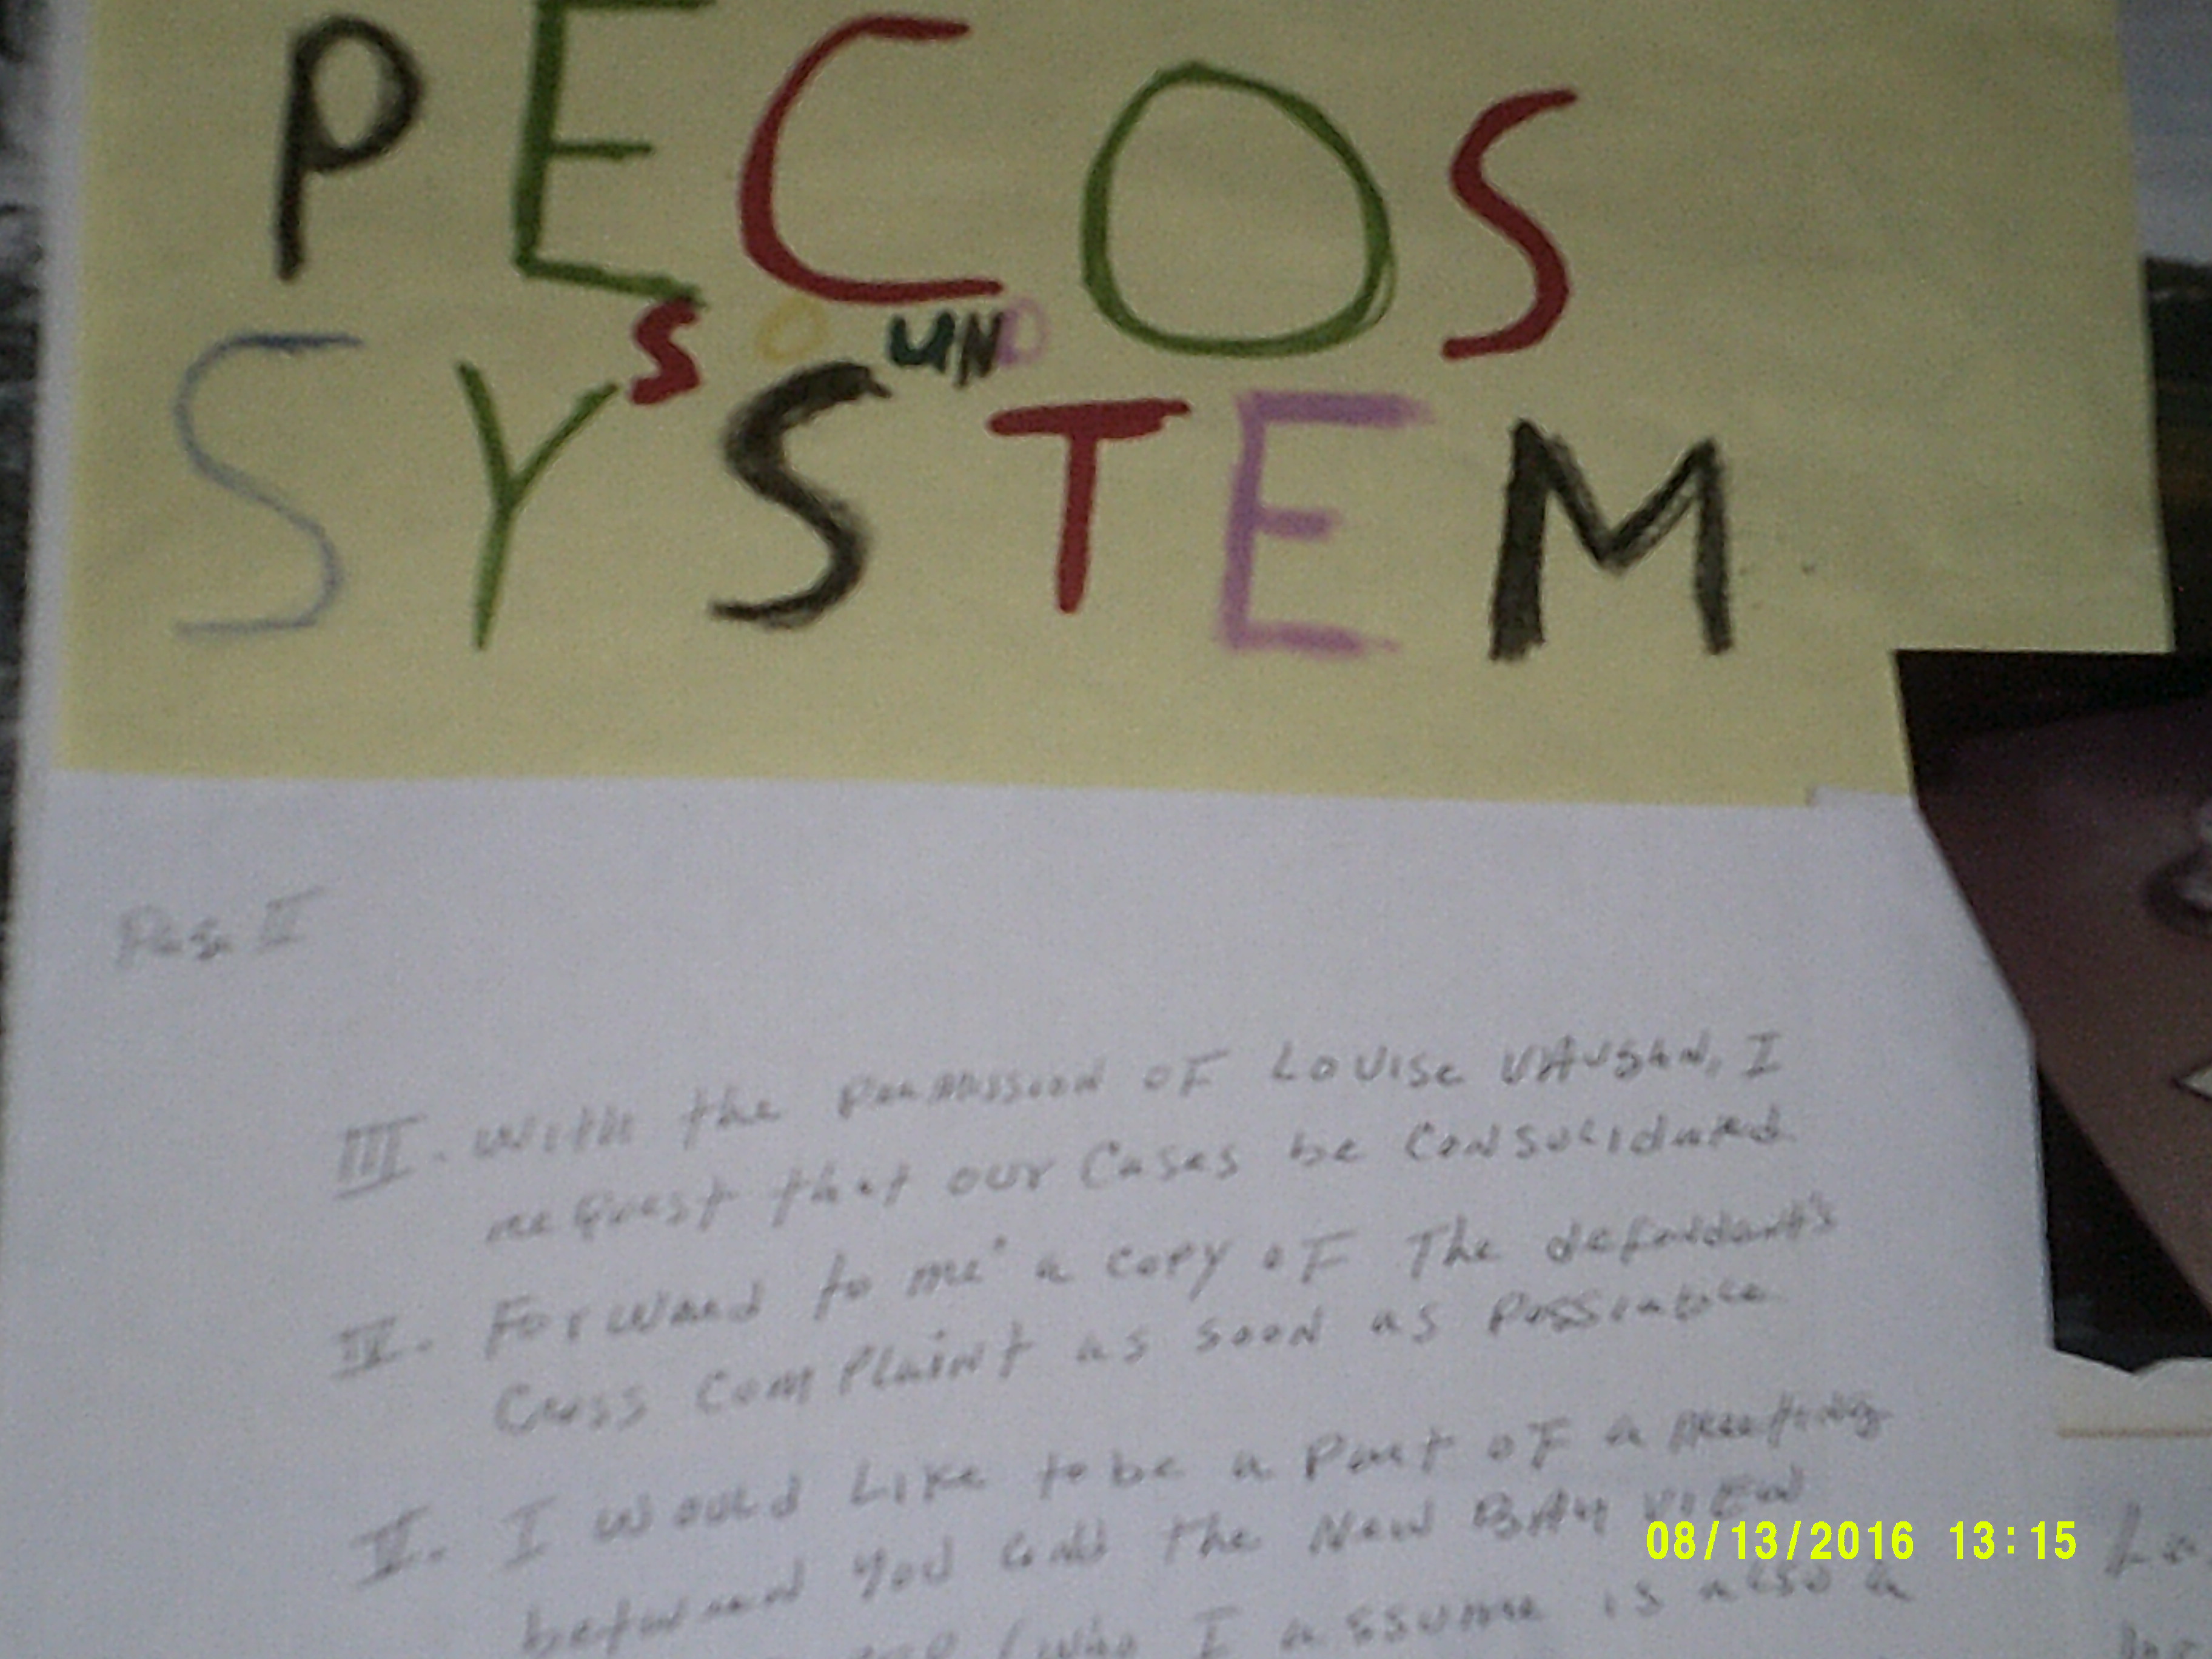 PECOS
SOUND
SYSTEM
Page II
III. With the permission OF LOUISE VAUGHN, I
request that our Cases be Consolidated
IV. Forward to me a copy OF The defendant's
Cross Complaint as soon as possiable
V. I would Like to be a Part OF a meeting
between you and the New BAY VIEW
(who I assume is also a
08/13/2016 13:15